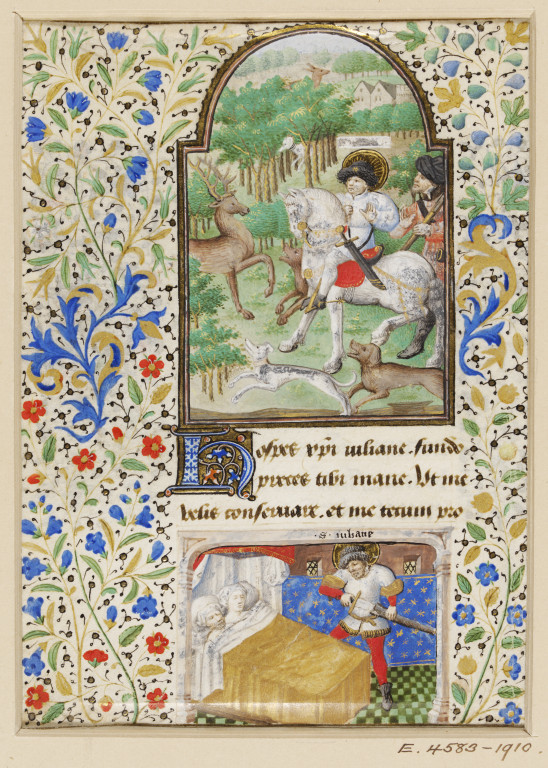 Hospes xpi iuliane. fundo
preces tibi mane. Vt me
velis conseruare, et me tecum pro
.S. iuliane
E. 4583-1910.